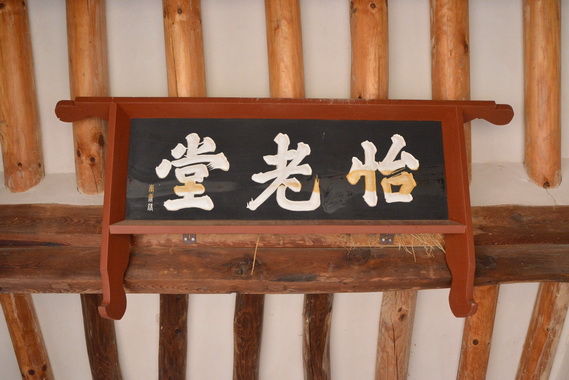 怡老堂